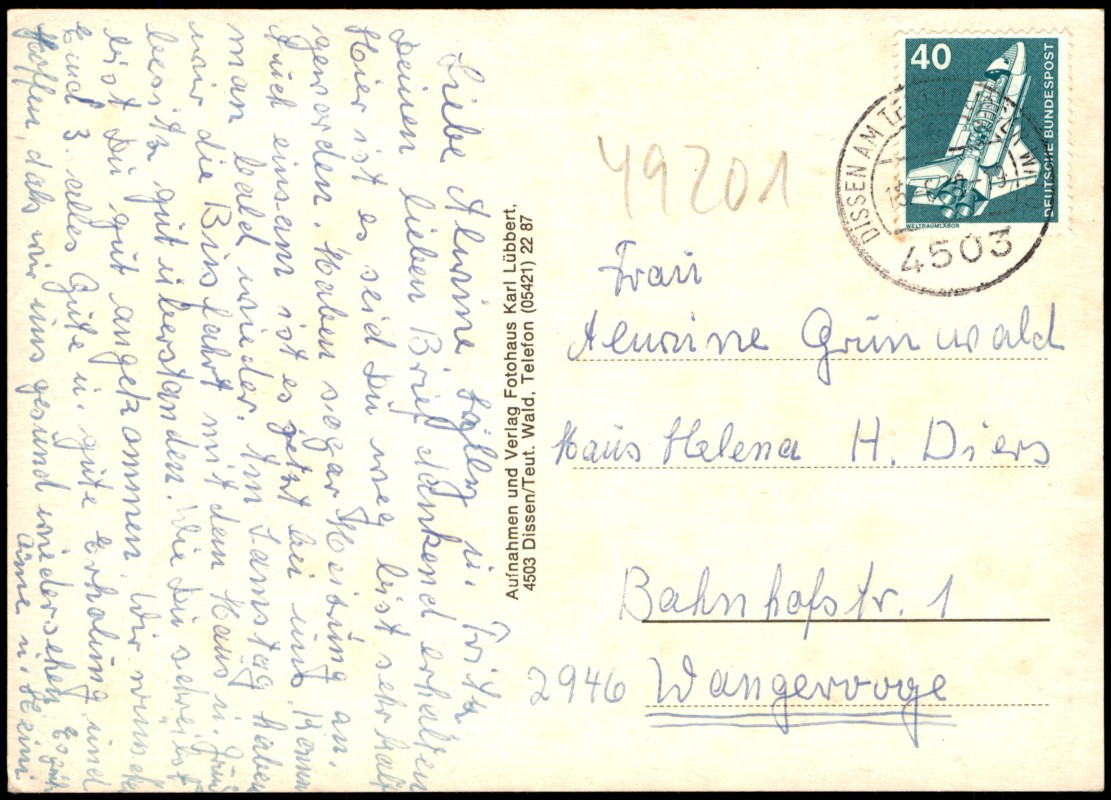 Liebe Alwine,
Deinen lieben Brief dankend erhalten
Hier ist es seid Du weg bist sehr kalt
geworden. Haben sogar Heitzung an.
Auch einsam ist es jetzt bei uns
man bald wieder. Am Samstag haben
wir die Busfahrt mit dem Haus u.
besitz gut überstanden. Wie Du schreibst
bist Du gut angekommen. Wir wünschen
Euch 3 alles Gute u. gute Erholung und
Hoffen, dass wir uns gesund wiedersehen. Es grüßt
Änne u. Heini
Aufnahmen und Verlag Fotohaus Karl Lübbert,
4503 Dissen/Teut. Wald, Telefon (05421) 22 87
49201
40
DEUTSCHE BUNDESPOST
WELTRAUMLABOR
DISSEN AM TEUTOB
4503
Frau
Alwine Grünwald
Haus Helena H. Diers
Bahnhofstr. 1
2946 Wangerooge